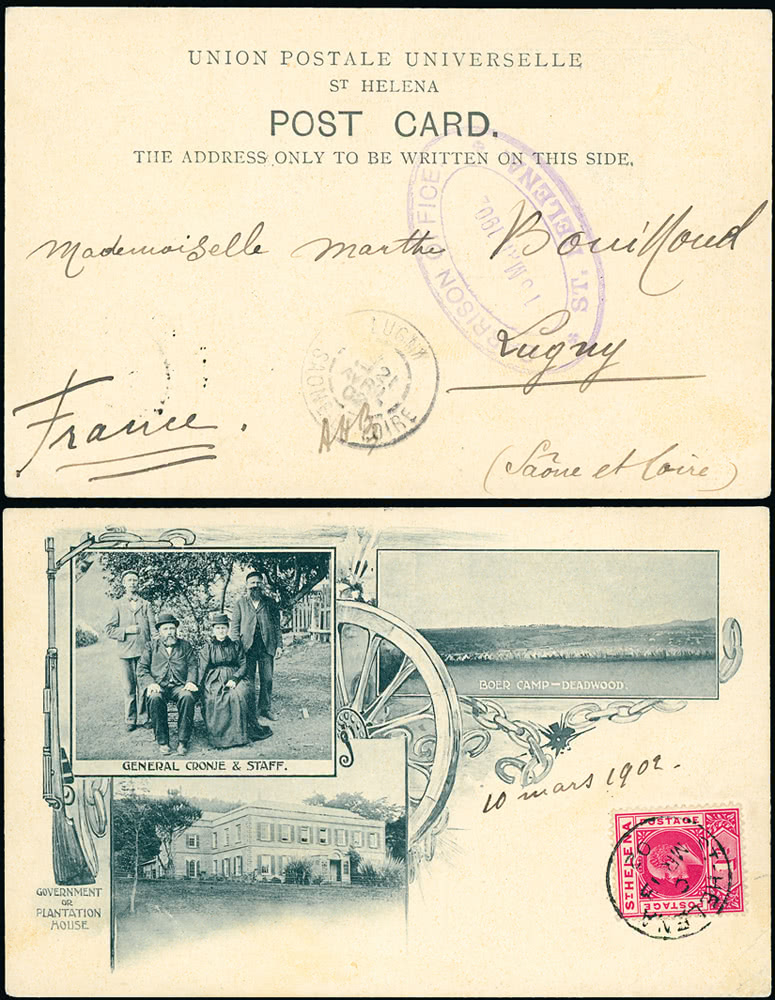 UNION POSTALE UNIVERSELLE
ST HELENA
POST CARD.
THE ADDRESS ONLY TO BE WRITTEN ON THIS SIDE.
RISON OFFICE
* ST. HELENA *
1902
Mademoiselle Marthe Bouilloud
Lugny
LUGNY
21
AVRIL
02
SAONE
LOIRE
France.
(Saône et Loire)
GENERAL CRONJE & STAFF.
BOER CAMP—DEADWOOD.
10 mars 1902.
GOVERNMENT
OR
PLANTATION
HOUSE
POSTAGE
ST HELENA
POSTAGE
ST HELENA
MR